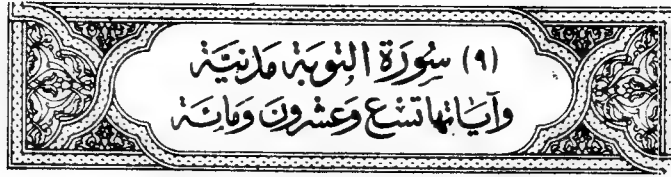 (٩) سُورَة التوبَة مَدنيَّة
وآيَاتهَا تسْع وَعشْرونَ وَمائَة